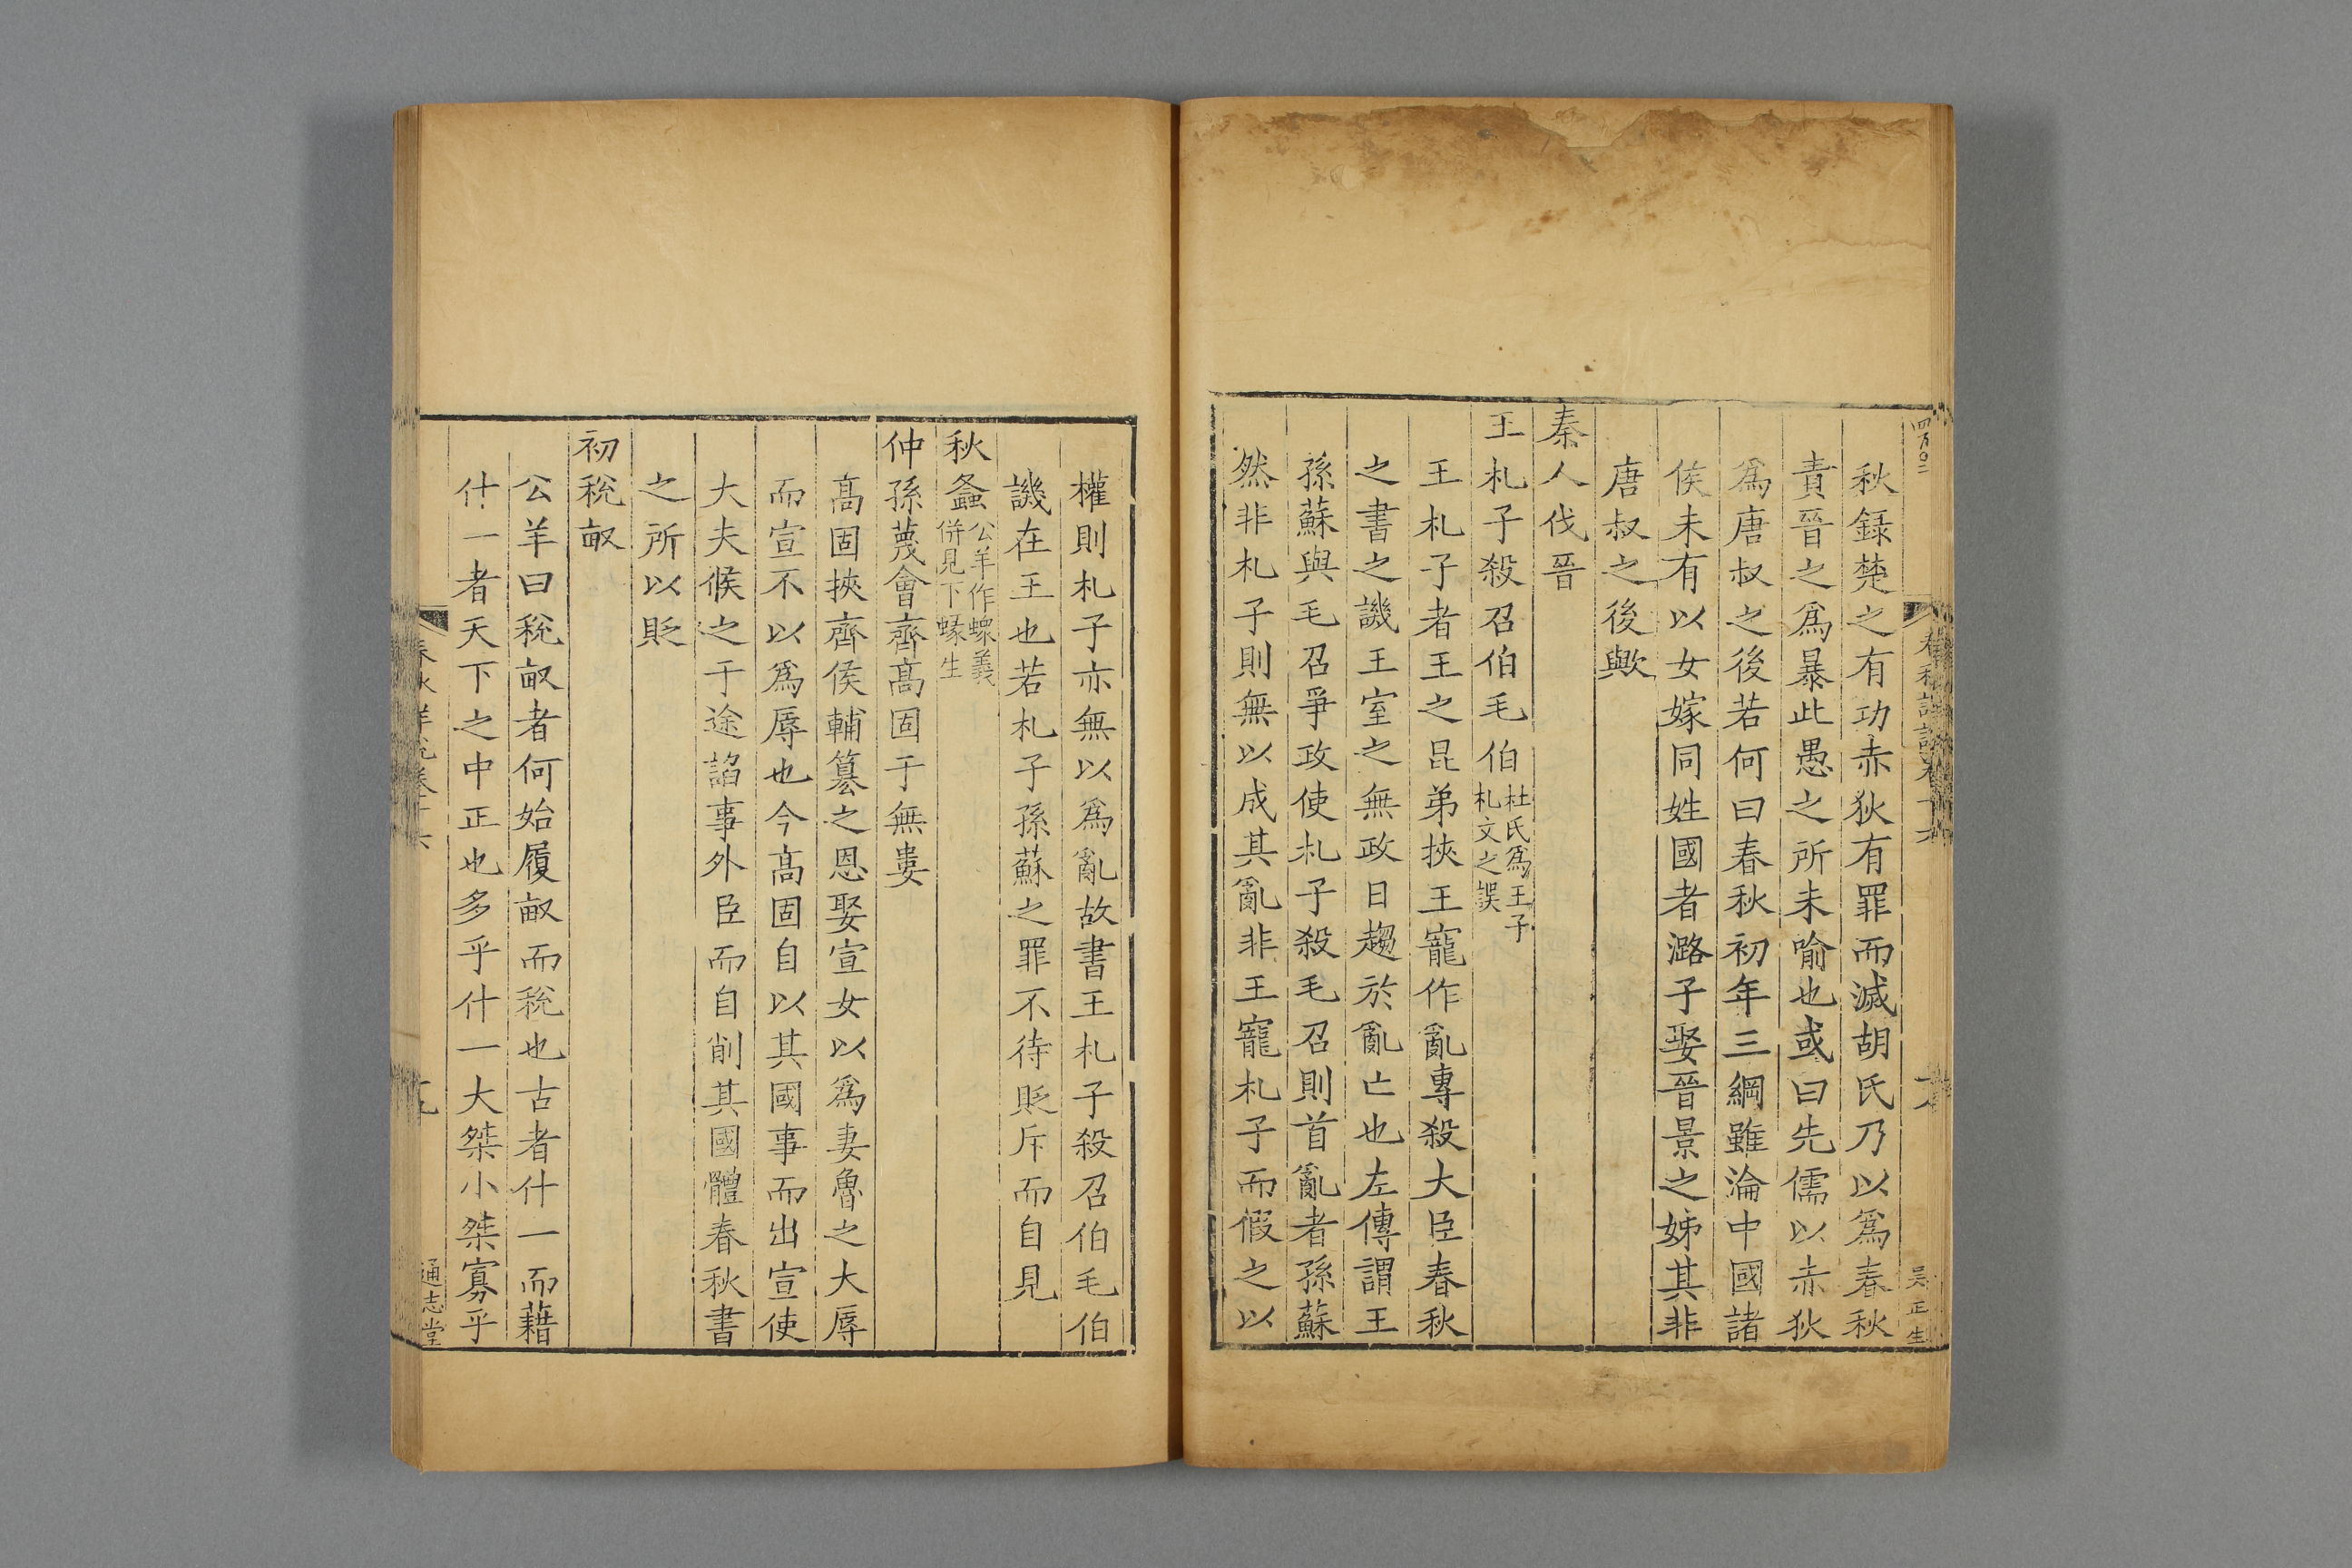 秋錄楚之有功赤狄有罪而滅胡氏乃以爲春秋
責晉之爲暴此愚之所未喻也或曰先儒以赤狄
爲唐叔之後若何曰春秋初年三綱雖淪中國諸
侯未有以女嫁同姓國者潞子娶晉景之姊其非
唐叔之後歟
秦人伐晉
王札子殺召伯毛伯杜氏爲王子札文之誤
王札子者王之昆弟挾王寵作亂專殺大臣春秋
之書之譏王室之無政日趨於亂亡也左傳謂王
孫蘇與毛召爭政使札子殺毛召則首亂者孫蘇
然非札子則無以成其亂非王寵札子而假之以
權則札子亦無以爲亂故書王札子殺召伯毛伯
譏在王也若札子孫蘇之罪不待貶斥而自見
秋螽公羊作蝝義併見下蝝生
仲孫蔑會齊高固于無婁
高固挾齊侯輔簒之恩娶宣女以爲妻魯之大辱
而宣不以爲辱也今高固自以其國事而出宣使
大夫候之于途諂事外臣而自削其國體春秋書
之所以貶
初稅畝
公羊曰稅畝者何始履畝而稅也古者什一而藉
什一者天下之中正也多乎什一大桀小桀寡乎
通志堂
吳正生